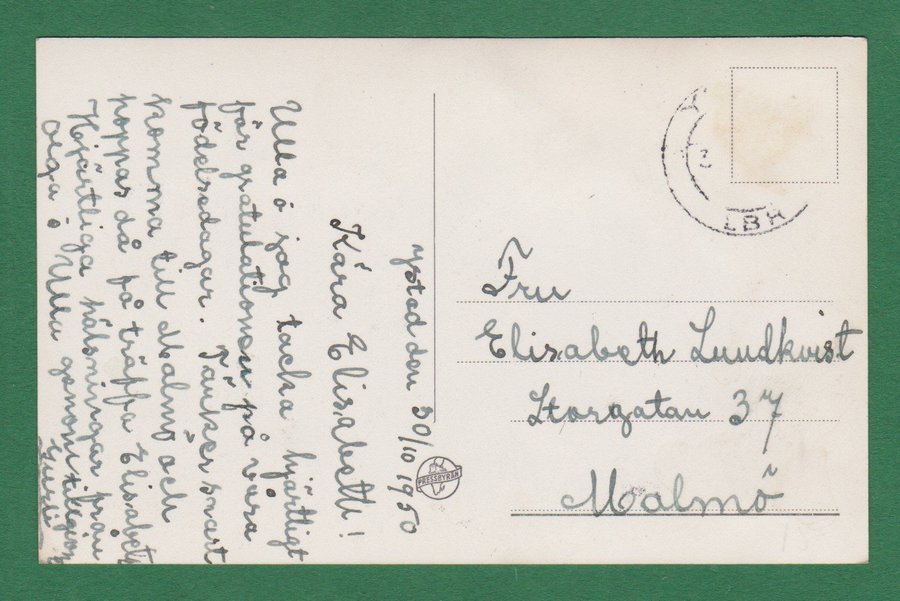 Ystad den 30/10 1950
Kära Elisabeth!
Ulla o jag tacka hjärtligt
för gratulationen på våra
födelsedagar. Tänker snart
komma till Malmö och
hoppas då få träffa Elisabeth
Hjärtliga hälsningar från
Olga o Ulla genom
PRESSBYRÅN
LBH
Fru
Elisabeth Lundkvist
Storgatan 37
Malmö